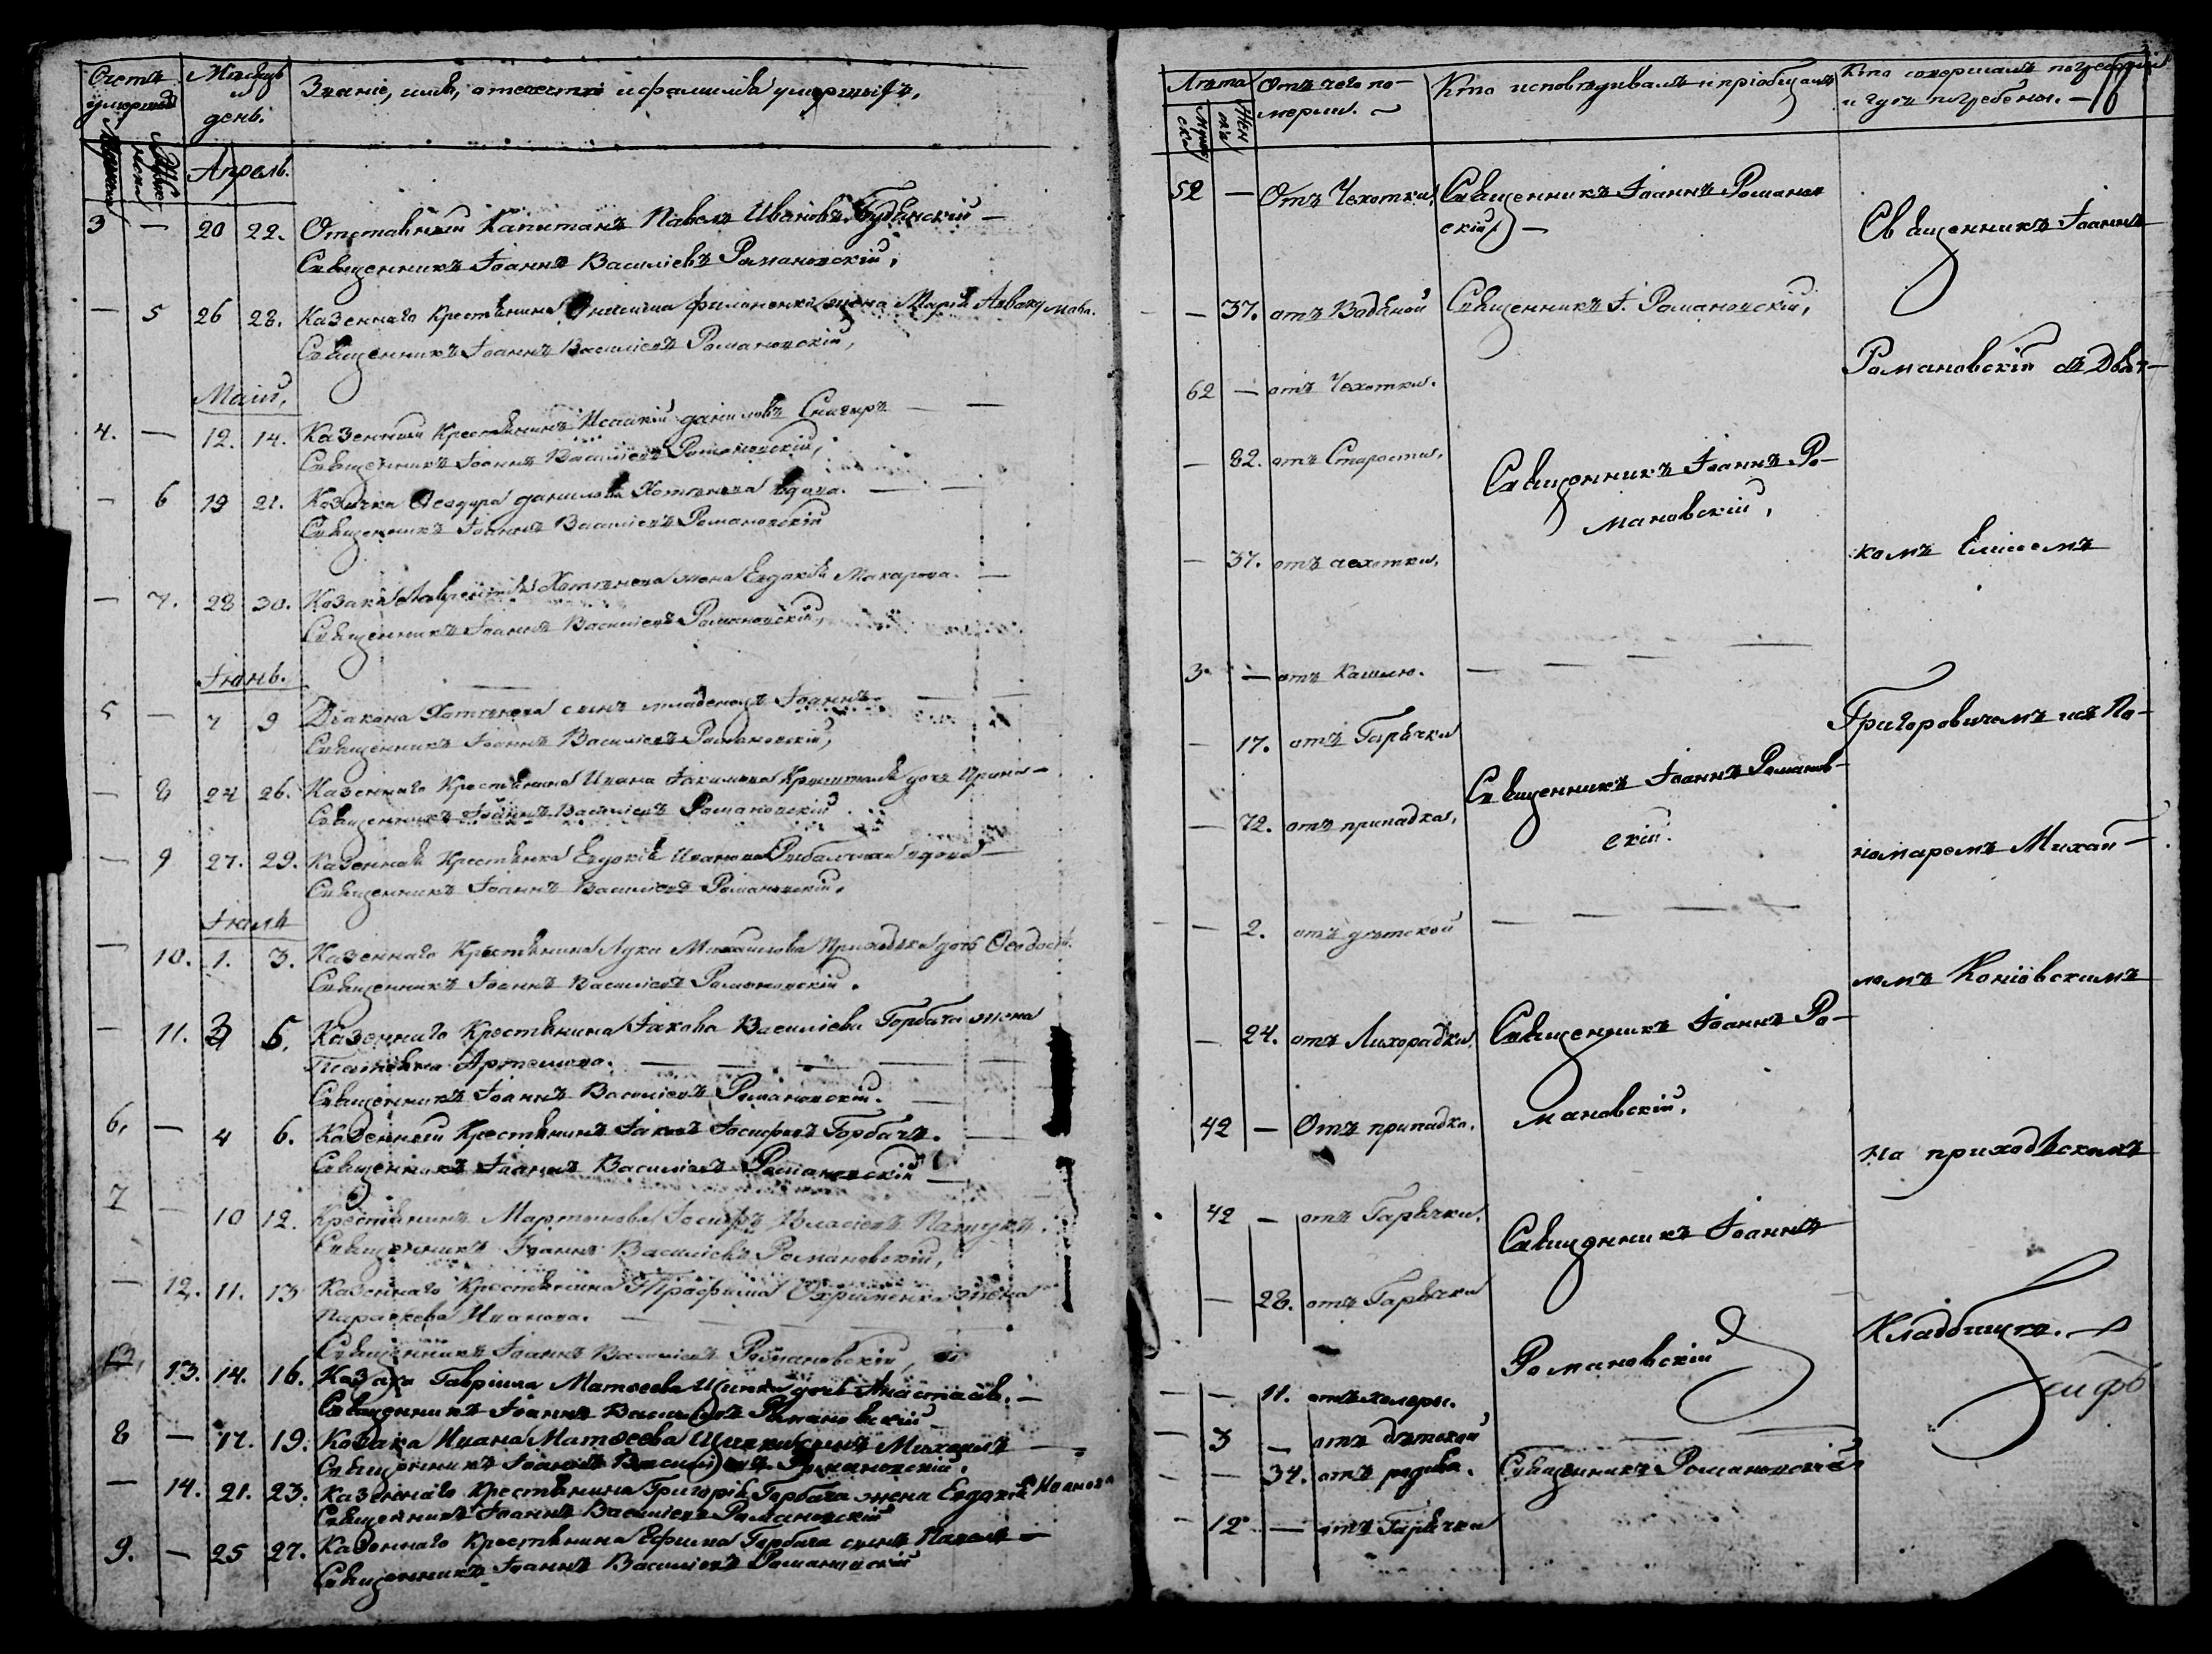 Счетъ умершихъ
Мѣсяцъ и день.
Званіе, имя, отечество и фамилія умершихъ,
Мужеска
Женска
Апрель.
3 — 20 22. Отставный Капитанъ Павелъ Ивановъ
Священникъ Іоаннъ Василіевъ Романовскій,
— 5 26 28. Казеннаго Крестянина Онисима Филоненка жена Марія Аввакумова.
Священникъ Іоаннъ Василіевъ Романовскій,
Маій,
4. — 12. 14. Казенный Крестянинъ Исаакій Даниловъ Снагиръ —
Священникъ Іоаннъ Василіевъ Романовскій,
— 6 19 21. Козачка Ѳеодора Данилова Хотынова вдова. —
Священникъ Іоаннъ Василіевъ Романовскій
— 7. 28 30. Козака Лаврентія Хотынова жена Евдокія Макарова. —
Священникъ Іоаннъ Василіевъ Романовскій,
Іюнь.
5 — 7 9 Діакона Хотынова сынъ младенецъ Іоаннъ. —
Священникъ Іоаннъ Василіевъ Романовскій,
— 8 24 26. Казеннаго Крестянина Ивана Іакимова дочь Ирина —
Священникъ Іоаннъ Василіевъ Романовскій
— 9 27. 29. Казенная Крестянка Евдокія Иванова вдова —
Священникъ Іоаннъ Василіевъ Романовскій.
Іюль
— 10. 1. 3. Казеннаго Крестянина Луки Михайлова Приходька дочь Ѳеодосія.
Священникъ Іоаннъ Василіевъ Романовскій.
— 11. 3 5. Казеннаго Крестянина Іакова Василіева Горбача жена
Артемова. —
Священникъ Іоаннъ Василіевъ Романовскій. —
6. — 4 6. Казенный Крестянинъ Іаковъ Іосифовъ Горбачъ. —
Священникъ Іоаннъ Василіевъ Романовскій —
7 — 10 12. Крестянинъ Мартынова Іосифъ Власіевъ
Священникъ Іоаннъ Василіевъ Романовскій,
— 12. 11. 13 Казеннаго Крестянина Трофима Охрименка жена
Параскева Иванова. —
Священникъ Іоаннъ Василіевъ Романовскій,
13. 14. 16. Козака Гавріила Матѳеева дочь Анастасія. —
Священникъ Іоаннъ Василіевъ Романовскій
8 — 17. 19. Козака Ивана Матѳеева сынъ Михаилъ —
Священникъ Іоаннъ Василіевъ Романовскій,
— 14. 21. 23. Казеннаго Крестянина Григорія Горбача жена Евдокія Иванова
Священникъ Іоаннъ Василіевъ Романовскій
9. — 25 27. Казеннаго Крестянина Ефима Горбача сынъ Павелъ —
Священникъ Іоаннъ Василіевъ Романовскій
Лѣта
Отъ чего померли. —
Кто исповѣдывалъ и пріобщалъ
Кто совершалъ погребеніе и гдѣ погребены. —
Мужеска
Женска
52 — Отъ Чахотки, Священникъ Іоаннъ Романов
скій —
Священникъ Іоаннъ
— 37. отъ Водяной Священникъ І. Романовскій,
Романовскій съ Дьяч—
62 — отъ Чехотки.
— 82. отъ Старости,
Священникъ Іоаннъ Ро—
мановскій,
— 37. отъ чехотки,
комъ
3. — отъ Кашлю. —
Григоровичемъ и съ По—
— 17. отъ Гарячки
Священникъ Іоаннъ Романов—
скій.
— 72. отъ припадка,
номаремъ Михаи—
— 2. отъ дѣтской —
ломъ
— 24. отъ Лихорадки, Священникъ Іоаннъ Ро—
мановскій.
42 — Отъ припадка.
на приходскомъ
42 — отъ Гарячки.
Священникъ Іоаннъ
— 28. отъ Гарячки
Кладбищѣ. —
Романовскій
— 11. отъ холеры.
— 3 — отъ дѣтской —
— 34. отъ родива. Священникъ Романовскій
— 12 — отъ Гарячки